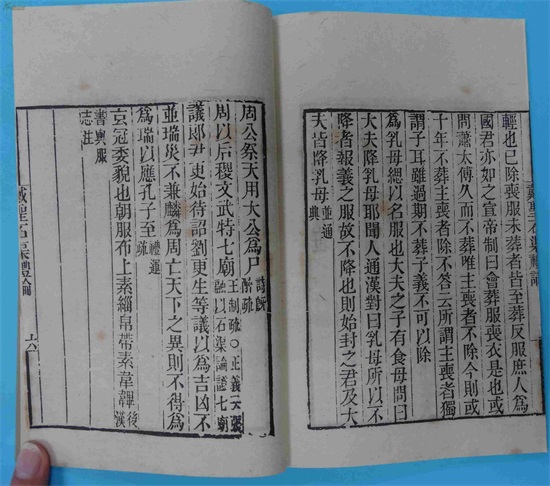 輕也已除喪服未葬者皆至葬反服庶人為
國君亦如之宣帝制曰會葬服喪衣是也或
問蕭太傅久而不葬唯主喪者不除今則或
十年不葬主喪者除不答云所謂主喪者獨
謂子耳雖過期不葬子義不可以除
為乳母緦以名服也大夫之子有食母問曰
大夫降乳母耶聞人通漢對曰乳母所以不
降者報義之服故不降也則始封之君及大
夫皆降乳母並通典
周公祭天用太公為尸詩既醉疏
周以后稷文武特七廟王制疏○正義張融以石渠論證七廟
議郎尹更始待詔劉更生等議以為吉凶不
並瑞災不兼麟為周亡天下之異則不得為
為瑞以應孔子至禮運疏
玄冠委貌也朝服布上素緇帛帶素韋韠後漢
書輿服志注